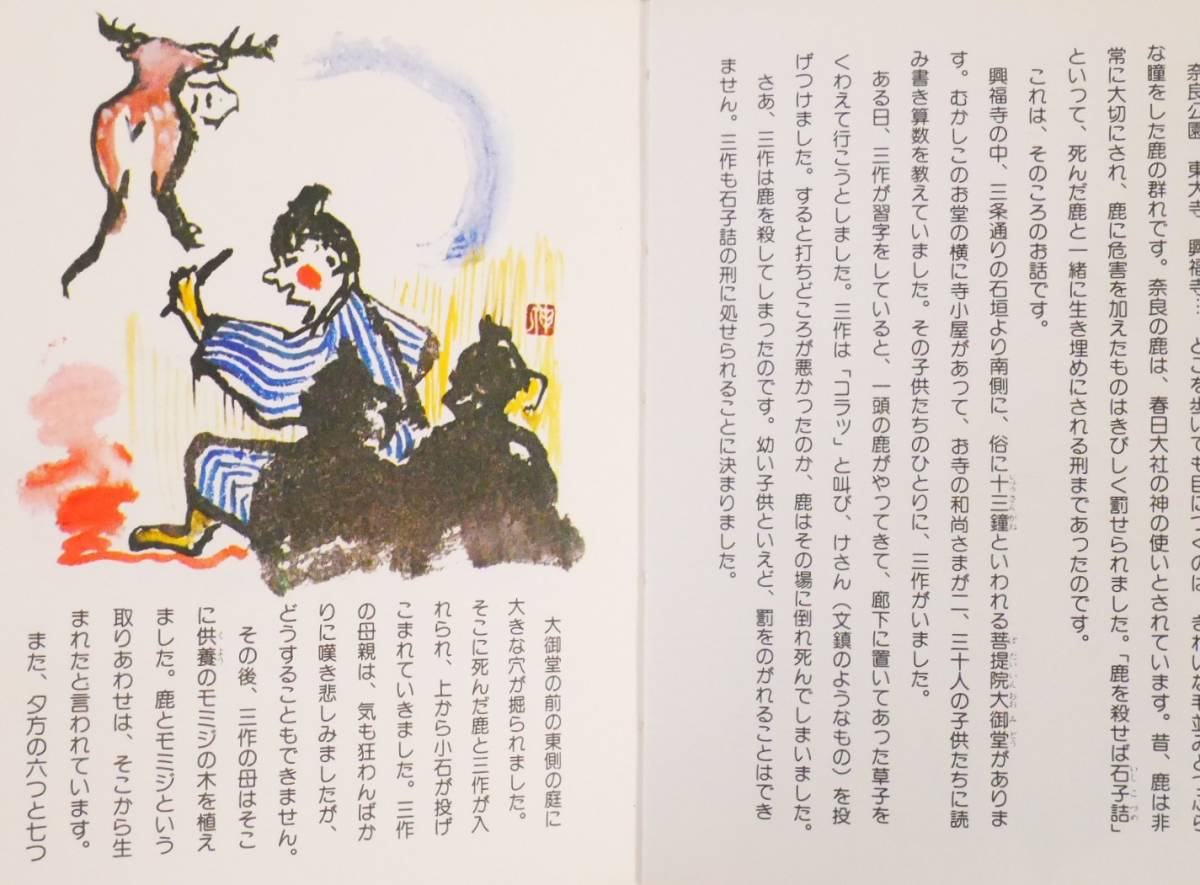 奈良公園 東大寺 興福寺… どこを歩いても目につくのは、きれいな毛並みと、つぶら
な瞳をした鹿の群れです。奈良の鹿は、春日大社の神の使いとされています。昔、鹿は非
常に大切にされ、鹿に危害を加えたものはきびしく罰せられました。「鹿を殺せば石子詰」
といって、死んだ鹿と一緒に生き埋めにされる刑まであったのです。
これは、そのころのお話です。
興福寺の中、三条通りの石垣より南側に、俗に十三鐘といわれる菩提院大御堂がありま
す。むかしこのお堂の横に寺小屋があって、お寺の和尚さまが二、三十人の子供たちに読
み書き算数を教えていました。その子供たちのひとりに、三作がいました。
ある日、三作が習字をしていると、一頭の鹿がやってきて、廊下に置いてあった草子を
くわえて行こうとしました。三作は「コラッ」と叫び、けさん（文鎮のようなもの）を投
げつけました。すると打ちどころが悪かったのか、鹿はその場に倒れ死んでしまいました。
さあ、三作は鹿を殺してしまったのです。幼い子供といえど、罰をのがれることはでき
ません。三作も石子詰の刑に処せられることに決まりました。
大御堂の前の東側の庭に
大きな穴が掘られました。
そこに死んだ鹿と三作が入
れられ、上から小石が投げ
こまれていきました。三作
の母親は、気も狂わんばか
りに嘆き悲しみましたが、
どうすることもできません。
その後、三作の母はそこ
に供養のモミジの木を植え
ました。鹿とモミジという
取りあわせは、そこから生
まれたと言われています。
また、夕方の六つと七つ